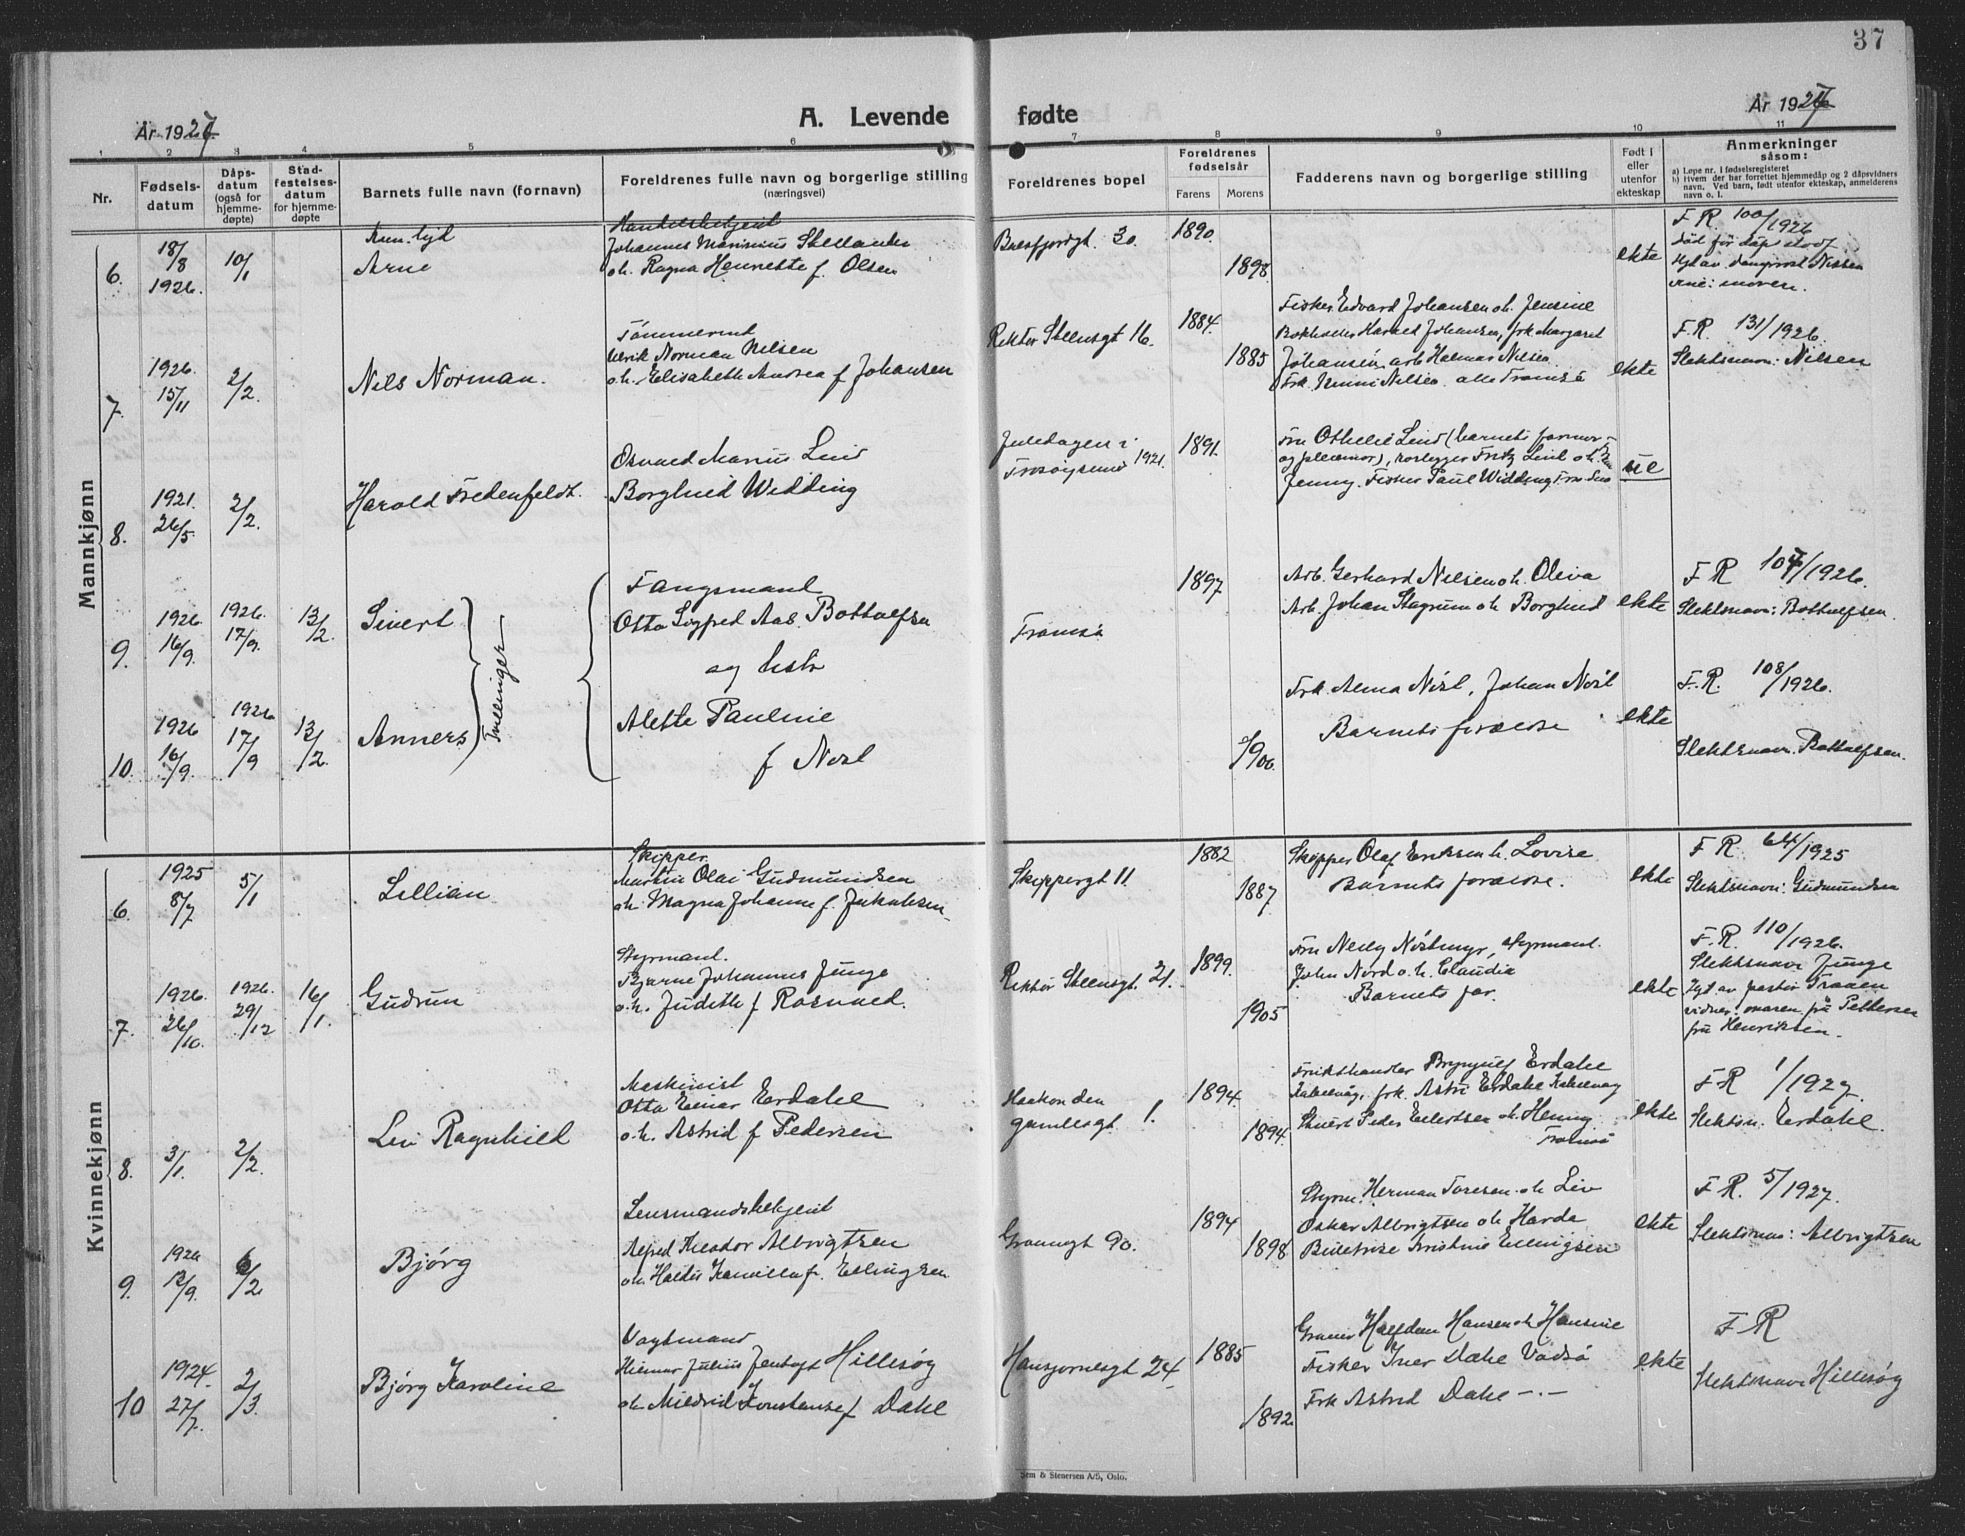 37
År 1927
A. Levende fødte
År 1927
1 2 3 4 5 6 7 8 9 10 11
Nr.
Fødsels-
datum
Dåps-
datum
(også for
hjemme-
døpte)
Stad-
festelses-
datum
for hjemme-
døpte
Barnets fulle navn (fornavn)
Foreldrenes fulle navn og borgerlige stilling
(næringsvei)
Foreldrenes bopel
Foreldrenes
fødselsår
Farens Morens
Fadderens navn og borgerlige stilling
Født i
eller
utenfor
ekteskap
Anmerkninger
såsom:
a) Løpe nr. i fødselsregisteret
b) Hvem der har forrettet hjemmedåp og 2 dåpsvidners
navn. Ved barn, født utenfor ekteskap, anmelderens
navn o. l.
Mannkjønn
6. 18/8 1926. 10/1
Arne
Handelsbetjent
Johannes Marinius
o. h. Ragna Henrette f. Olsen
30. 1890. 1898. ekte
F. R. 100/1926
død før dåp
7. 1926. 15/11 2/2.
Nils Norman.
Tømmermt
Ulrik Norman Nilsen
o. h. Elisabeth Andrea f Johansen
Rektor Steensgt 16. 1884. 1885
Fisker Edvard Johansen o. h. Jensine
Bokholder Harald Johansen, frk Margaret
Johansen, arb. Halmar Nilsen
Frk. Nilsen. alle Tromsø
ekte
F. R. 131/1926.
Slektsnavn: Nilsen
8. 1921. 26/5 2/2.
Harald Fredenfeldt.
Osvald Marius Lind
Borghild Widding
1921. 1891.
Fru Othelie Lind (barnets farmor
og pleiemor),
Jenny. Fisker Paul Widding
9. 1926 16/9. 1926. 17/9. 13/2
Sivert
Tvillinger
Fangstmand
Otto Sigfred Aas. Bottolfsen
og hstr
Tromsø
1897
Arb. Gerhard Nilsen o. h. Oliva
Arb. Johan Stagrum o. h. Borghild
ekte
F R 107/1926.
Slektsnavn: Bottolfsen.
10. 1926 16/9. 1926 17/9 13/2
Anners
Alette Pauline
1900.
Barnets foreldre
ekte
F. R. 108/1926.
Slektsnavn. Bottolfsen.
Kvinnekjønn
6. 1925 8/7 5/1
Lillian
Skipper
Martin Olai Gudmundsen
o. h. Magna Johanne f. Jakobsen
Skippergt 11. 1882 1887
Skipper Olaf Eriksen h. Lovise
Barnets foreldre.
ekte
F R. 64/1925
Slektsnavn: Gudmundsen
7. 1926. 26/10. 1926. 29/12 16/1.
Gudrun
Styrmand.
Bjarne Johannes Junge
o. h. Judith f Rosvold.
Rektor Steensgt. 21. 1899. 1905
Fru Nelly Nøstmyr, styrmand.
John Nord o. h. Claudia
Barnets far.
ekte
F. R. 110/1926.
Slektsnavn Junge
fru Henriksen.
8. 3/1. 2/2.
Liv Ragnhild
Maskinist
Otto Einar Erdahl
o. h. Astrid f Pedersen
Haakon den
gamlesgt 1. 1894. 1894.
Frukthandler Brynjulf Erdahl
frk. Astri Erdahl
Peder Eilertsen o. h. Henny
Tromsø
ekte
F R 1/1927
Slektsn. Erdahl.
9. 1926 12/9. 6/2
Bjørg
Lensmandsbetjent
Alfred Theodor Albrigtsen
f. Ellingsen
90. 1894 1898
Styrm. Herman Toresen o. h. Liv
Oskar Albrigtsen o. h. Harda
Kristine Ellingsen
ekte
F R. 5/1927.
Slektsnav: Albrigtsen
10 1924. 27/7. 2/3.
Bjørg Karoline
Vagtmand
Hilmar Julius Jentoft Hillesøy
o. h. Mildrid Konstanse f Dahl
Hansjordnesgt 24. 1885 1892.
Halfdan Hansen o. h. Hansine
Fisker Iver Dahl Vadsø
Frk Astrid Dahl — . —
ekte
F R
Slektsnavn Hillesøy
Sem & Stenersen A/S, Oslo.